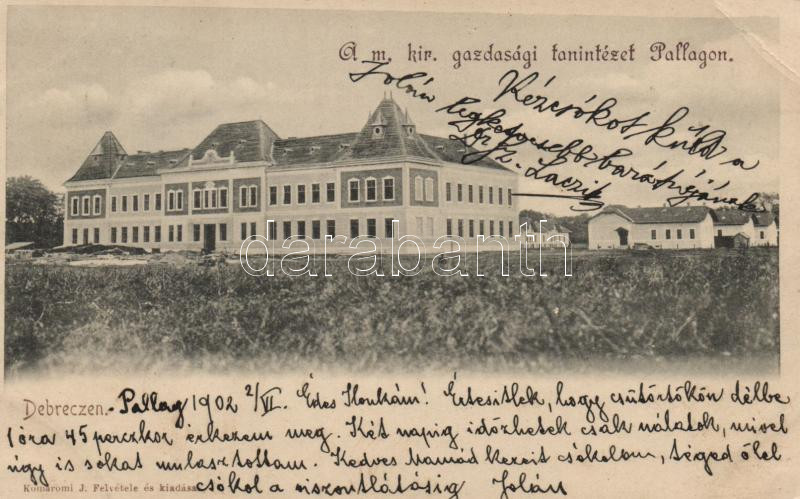 A m. kir. gazdasági tanintézet Pallagon.
Jolán Kézcsókot küld a
legkedvesebb barátnőjának
Laczit
darabanth
Debreczen. Pallag 1902 2/VI. Édes Ilonkám! Értesitlek, hogy csütörtökön délbe
1 óra 45 perczkor érkezem meg. Két napig időzhetek csak nálatok, mivel
úgy is sokat mulasztottam. Kedves mamád kezeit csókolom, téged ölel
Komáromi J. Felvétele és kiadása csókol a viszontlátásig Jolán